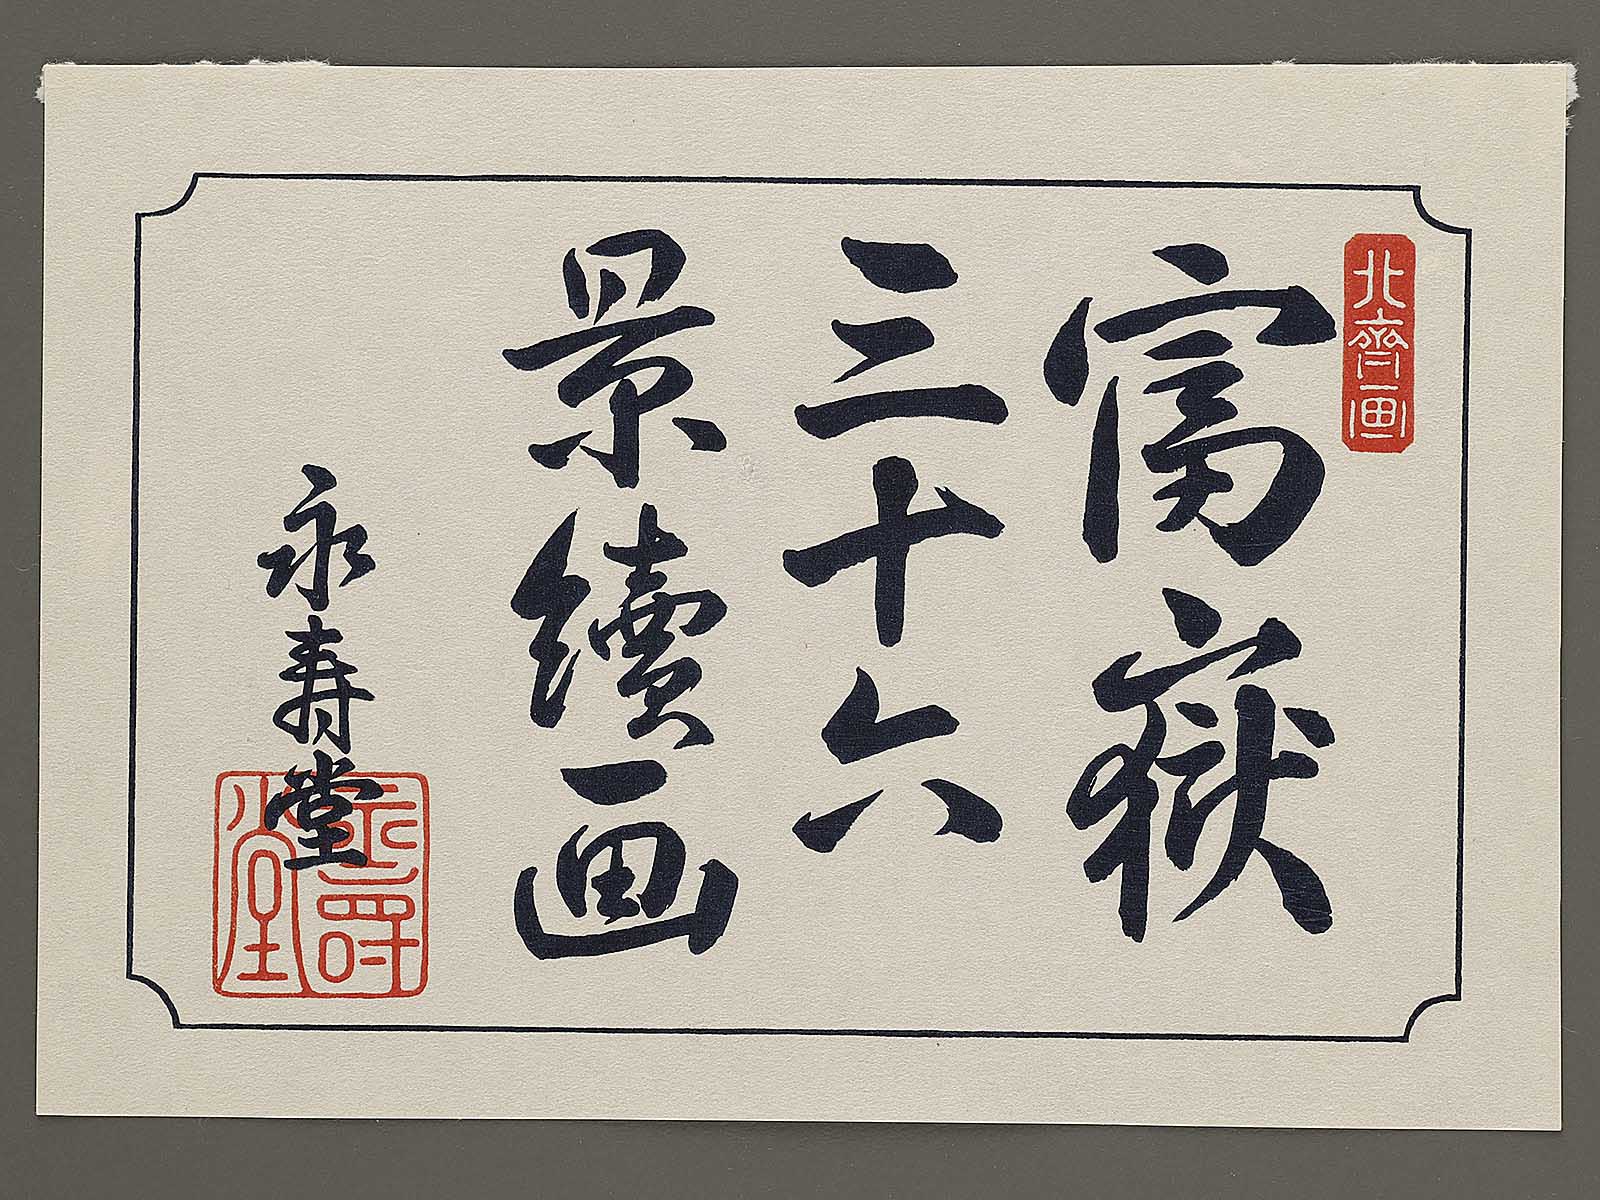 北齋画
富嶽
三十六
景續画
永寿堂
永壽堂